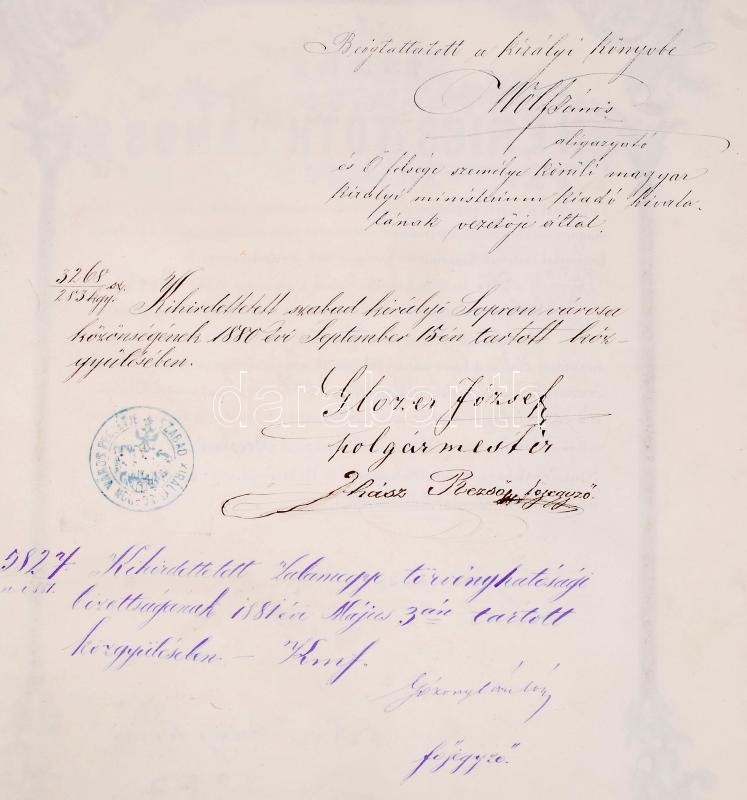 Beigtattatott a királyi könyvbe
Wolf János
aligazgató
és Ő felsége személye körüli magyar
királyi ministerium kiadó hivata-
lának vezetője által.
3268 sz.
283 kgy.
Kihirdettetett szabad királyi Sopron városa
közönségének 1880 évi September 15én tartott köz-
gyülésében.
darabanth
Glozer József
polgármester
Ihász Rezső főjegyző.
SZABAD KIRÁLYI SOPRON VÁROS PECSÉTJE
5827
Kihirdettetett Zalamegye törvényhatósági
bizottságának 1881 évi Május 3án tartott
közgyülésében. – Kmf.
főjegyző.